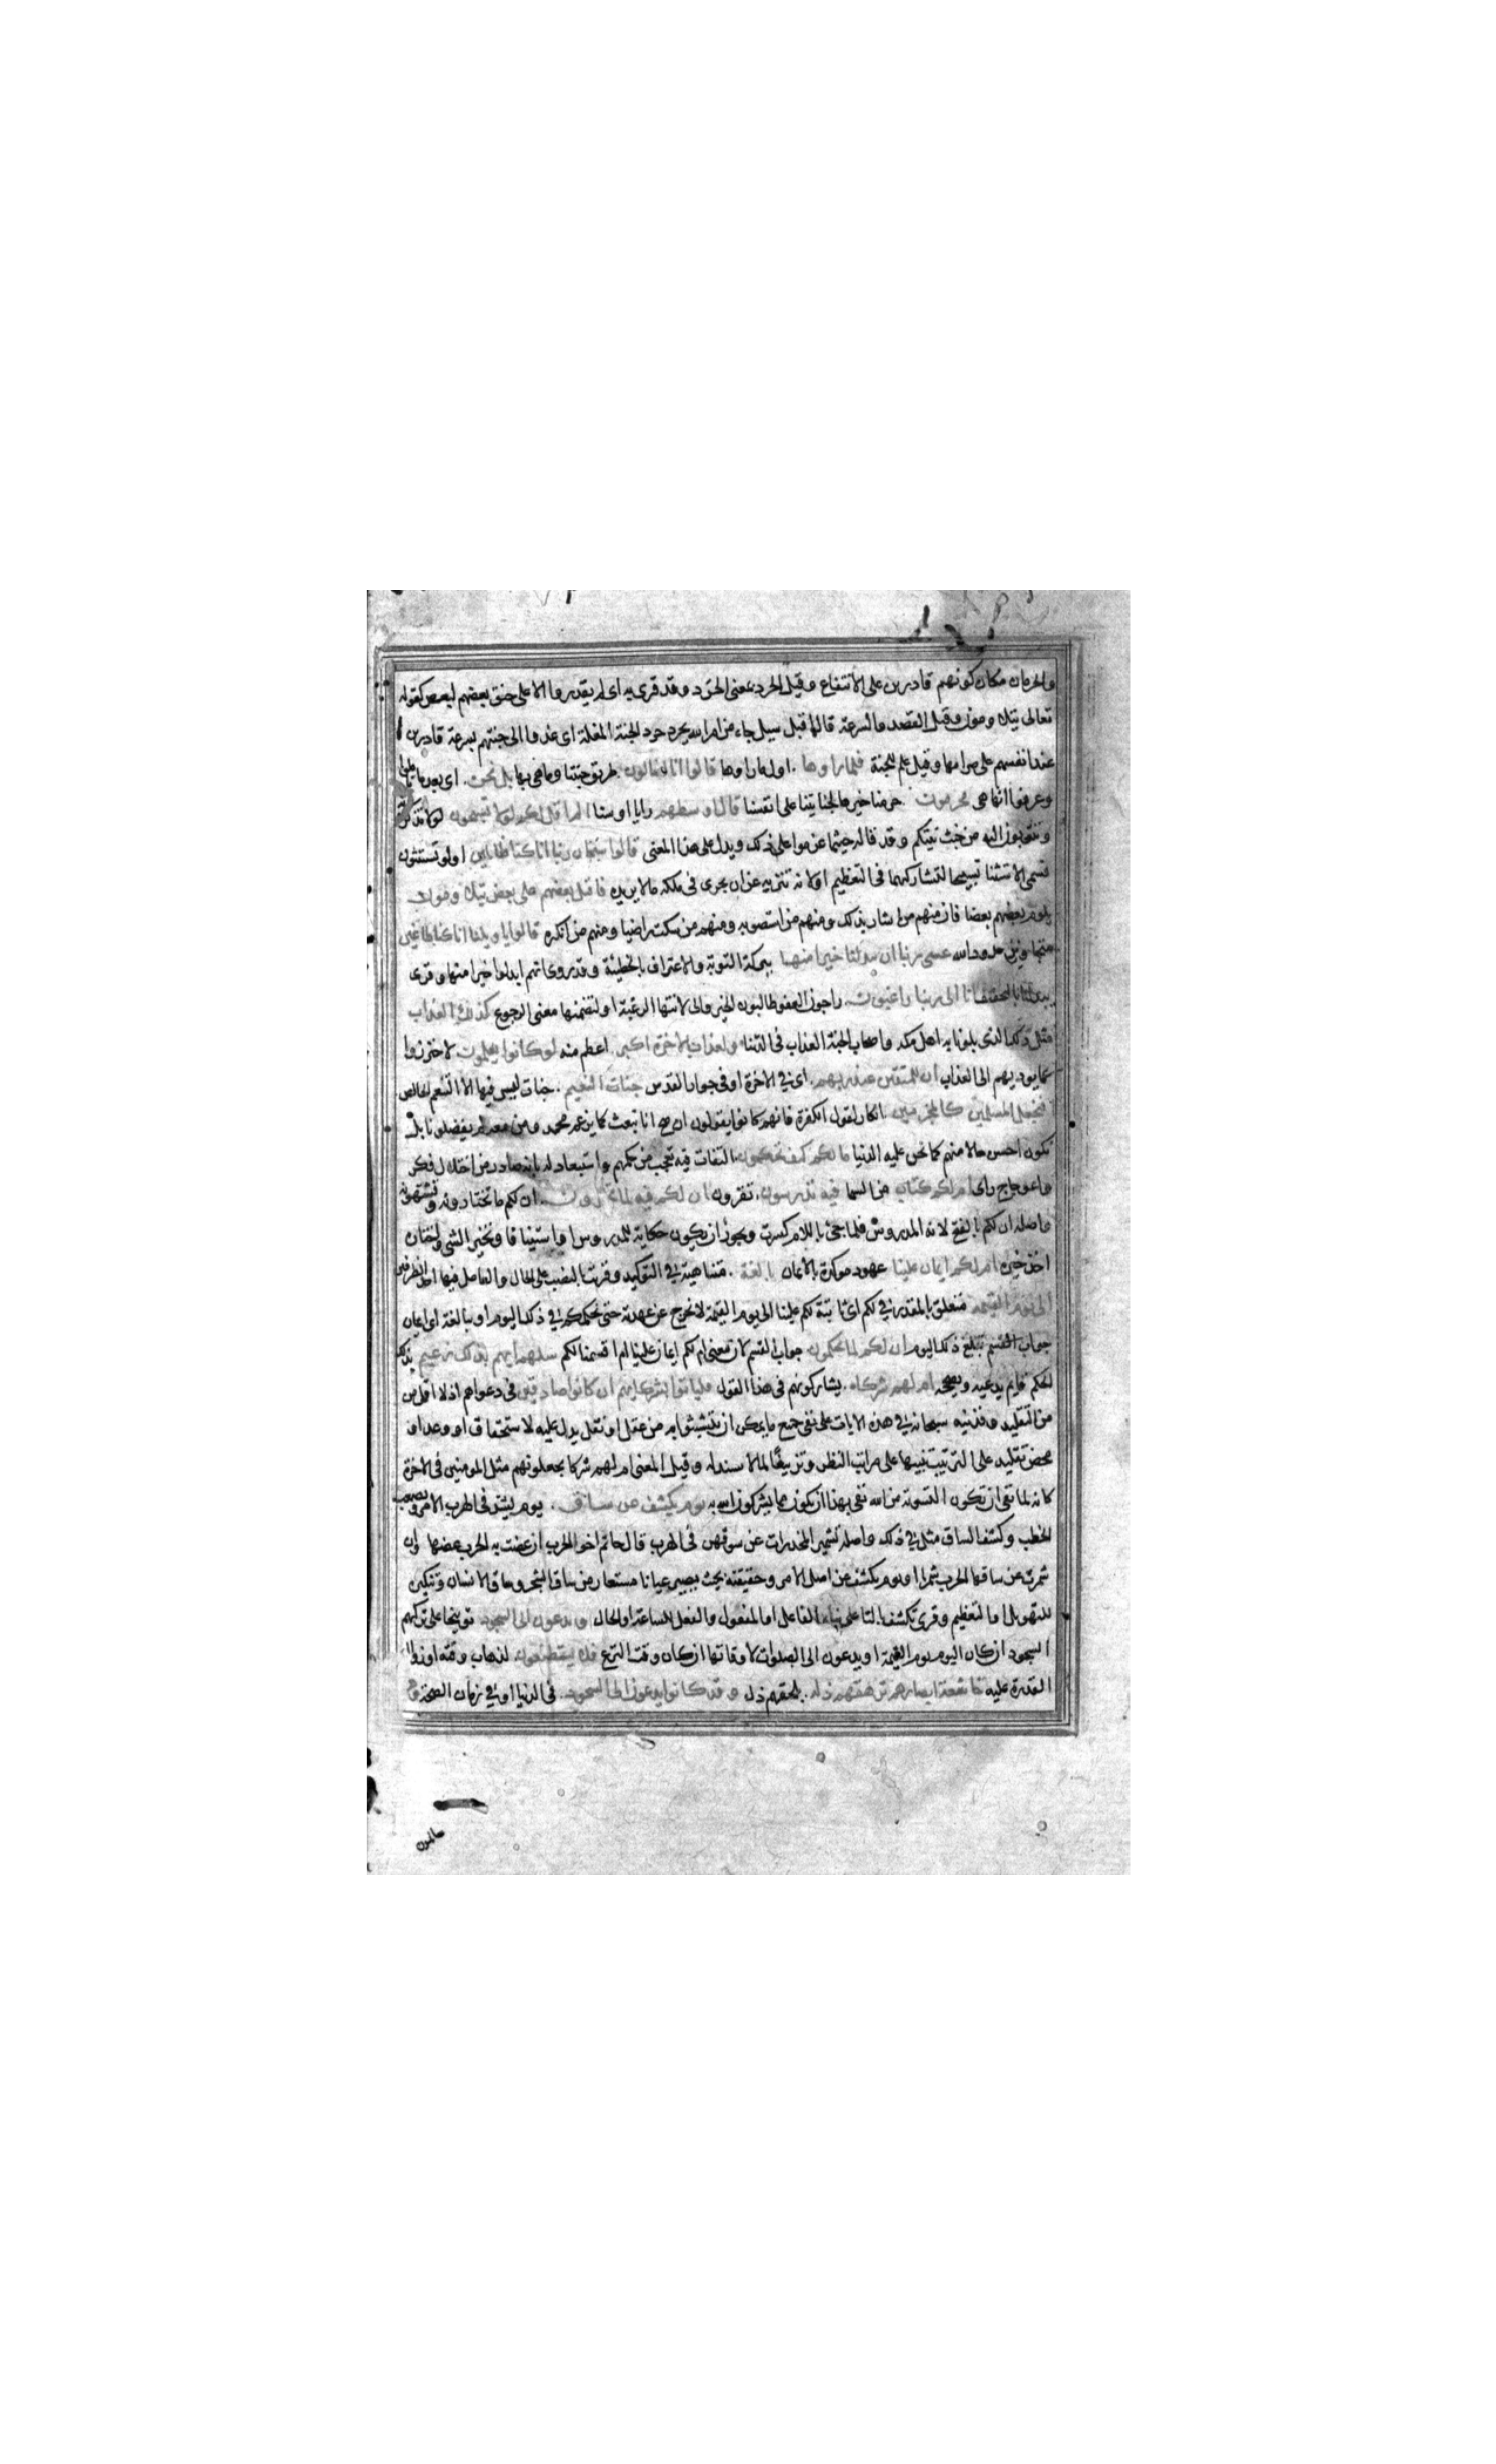 والحرمان مكان كونهم قادرين على الانتفاع وقيل الحرد بمعنى الحرد وقد قرى به اى لم يقدروا الا على حنق بعضهم لبعض كقوله
تعالى يتلاومون وقيل القصد والسرعة قال اقبل سيل جاء من امر الله يحرد حرد الجنة المغلة اى غدوا الى جنتهم بسرعة قادرين
عند انفسهم على صرامها وقيل علم للجنة فلما راوها اول ما راوها قالوا انا لضالون طريق جنتنا وما هى بها بل نحن اى بعد ما تاملوا
وعرفوا انها هى محرومون حرمنا خيرها لجنايتنا على انفسنا قال اوسطهم رايا او سنا الم اقل لكم لولا تسبحون لولا تذكرونه
وتتوبون اليه من خبث نيتكم وقد قاله حيثما عزموا على ذلك ويدل على هذا المعنى قالوا سبحان ربنا انا كنا ظالمين او لولا تستثنون
فسمى الاستثنا تسبيحا لتشاركهما فى التعظيم او لانه تنزيه عن ان يجرى فى ملكه ما لا يريده فاقبل بعضهم على بعض يتلاومون
يلوم بعضهم بعضا فان منهم من اشار بذلك ومنهم من استصوبه ومنهم من سكت راضيا ومنهم من انكره قالوا يا ويلنا انا كنا طاغين
متجاوزين حدود الله عسى ربنا ان يبدلنا خيرا منها ببركة التوبة والاعتراف بالخطيئة وقد روى انهم ابدلوا خيرا منها وقرى
يبدلنا بالتخفيف انا الى ربنا راغبون راجون العفو طالبون الخير والى لانتها الرغبة او لتضمنها معنى الرجوع كذلك العذاب
مثل ذلك الذى بلونا به اهل مكة واصحاب الجنة العذاب فى الدنيا ولعذاب الاخرة اكبر اعظم منه لو كانوا يعلمون لاحترزوا
عما يوديهم الى العذاب ان للمتقين عند ربهم اى فى الاخرة او فى جوار القدس جنات النعيم جنات ليس فيها الا التنعم الخالص
افنجعل المسلمين كالمجرمين انكار لقول الكفرة فانهم كانوا يقولون ان صح انا نبعث كما يزعم محمد ومن معه لم يفضلونا بل
نكون احسن حالا منهم كما نحن عليه الدنيا مالكم كيف تحكمون التفات فيه تعجب من حكمهم واستبعاد له بانه صادر من اختلال فكر
واعوجاج راى ام لكم كتاب من السما فيه تدرسون تقرون ان لكم فيه لما تخيرون ان لكم ما تختارونه وتشتهونه
واصله ان لكم بالفتح لانه المدروس فلما جئ باللام كسرت ويجوز ان يكون حكاية للمدروس او استينافا وتخير الشى واختان
اخذ خيره ام لكم ايمان علينا عهود موكدة بالايمان بالغة متناهية فى التوكيد وقريت بالنصب على الحال والعامل فيها احد الظرفين
الى يوم القيمة متعلق بالمقدر فى لكم اى ثابتة لكم علينا الى يوم القيمة لا نخرج عن عهدته حتى نحكمكم فى ذلك اليوم او ببالغة اى ايمان
تبلغ ذلك اليوم ان لكم لما تحكمون جواب القسم لان معنى ام لكم ايمان علينا ام اقسمنا لكم سلهم ايهم بذلك زعيم بذلك
الحكم قايم يدعيه ويصححه ام لهم شركاء يشاركونهم فى هذا القول فلياتوا بشركايهم ان كانوا صادقين فى دعواهم اذ لا اقل من
من التقليد وقد نبه سبحانه فى هذه الايات على نفى جميع ما يمكن ان يتشبثوا به من عقل او نقل يدل عليه لاستحقاق او وعد او
محض تقليد على الترتيب تنبيها على مراتب النظر وتزييفا لما لا سند له وقيل المعنى ام لهم شركا يجعلونهم مثل المومنين فى الاخرة
كانه لما نفى ان تكون التسوية من الله نفى بهذا ان يكون مما يشركون الله به يوم يكشف عن ساق يوم يشتد فى الهرب الامر ويصعب
الخطب وكشف الساق مثل فى ذلك واصله تشمير المخدرات عن سوقهن فى الهرب قال حاتم اخو الحرب ان عضت به الحرب عضها وان
شمرت عن ساقها الحرب شمرا او يوم يكشف عن اصل الامر وحقيقته بحيث يصير عيانا مستعار من ساق الشجر وساق الانسان وتنكيره
للتهويل او التعظيم وقرى تكشف بالتا على بناء الفاعل او المفعول والفعل للساعة او الحال ويدعون الى السجود توبيخا على تركهم
السجود ان كان اليوم يوم القيمة او يدعون الى الصلوات لاوقاتها ان كان وقت النزع فلا يستطيعون لذهاب وقته او زوال
القدرة عليه خاشعة ابصارهم ترهقهم ذلة يلحقهم ذل وقد كانوا يدعون الى السجود فى الدنيا او فى زمان الصحة وهم
سالمون